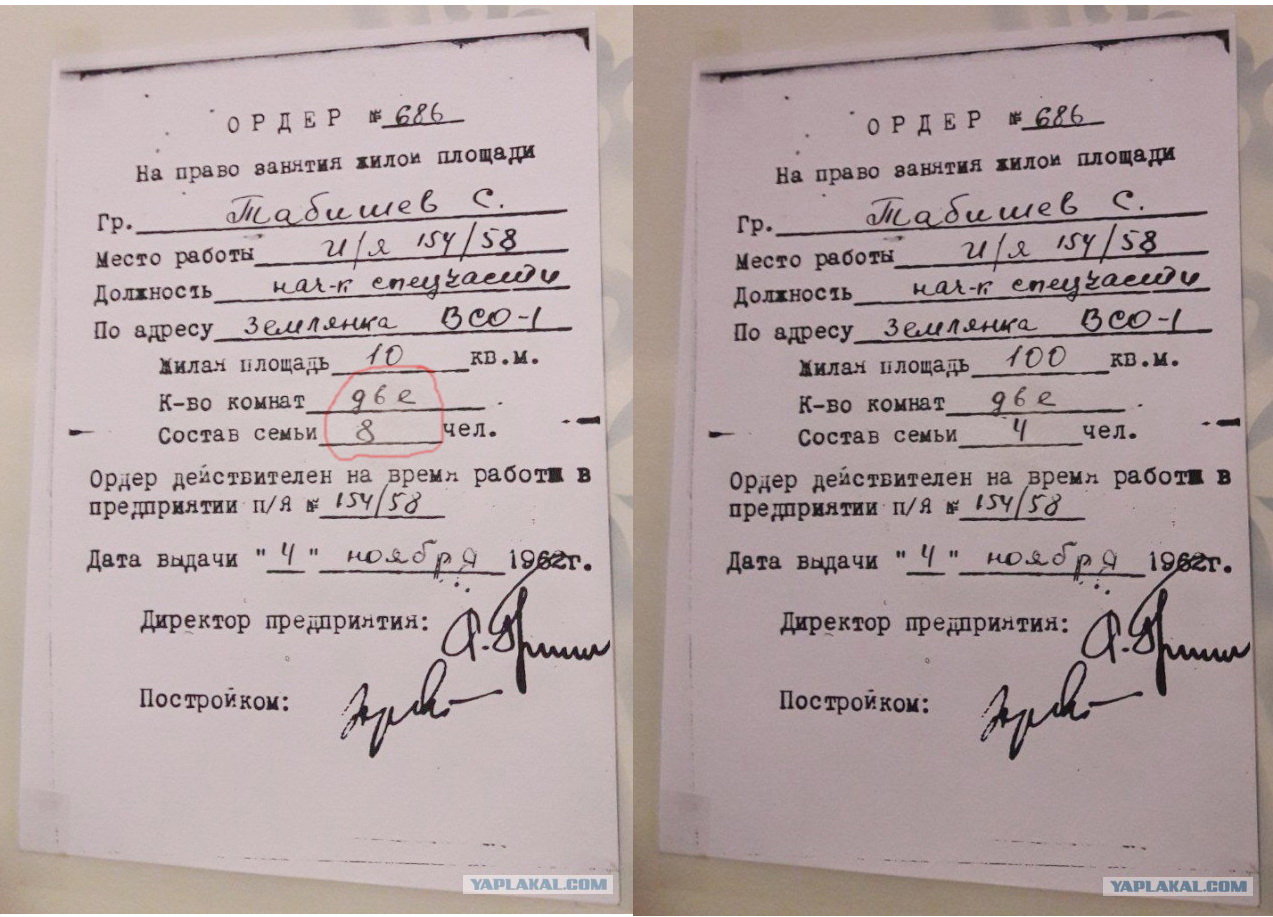 ОРДЕР № 686
На право занятия жилой площади
Гр. Табишев С.
Место работы И/я 154/58
Должность нач-к спецчасти
По адресу Землянка ВСО-1
Жилая площадь 10 кв.м.
К-во комнат две
Состав семьи 8 чел.
Ордер действителен на время работы в
предприятии п/Я № 154/58
Дата выдачи "4" ноября 1962г.
Директор предприятия:
Постройком:
YAPLAKAL.COM
ОРДЕР № 686
На право занятия жилой площади
Гр. Табишев С.
Место работы И/я 154/58
Должность нач-к спецчасти
По адресу Землянка ВСО-1
Жилая площадь 100 кв.м.
К-во комнат две
Состав семьи 4 чел.
Ордер действителен на время работы в
предприятии п/Я № 154/58
Дата выдачи "4" ноября 1962г.
Директор предприятия:
Постройком:
YAPLAKAL.COM